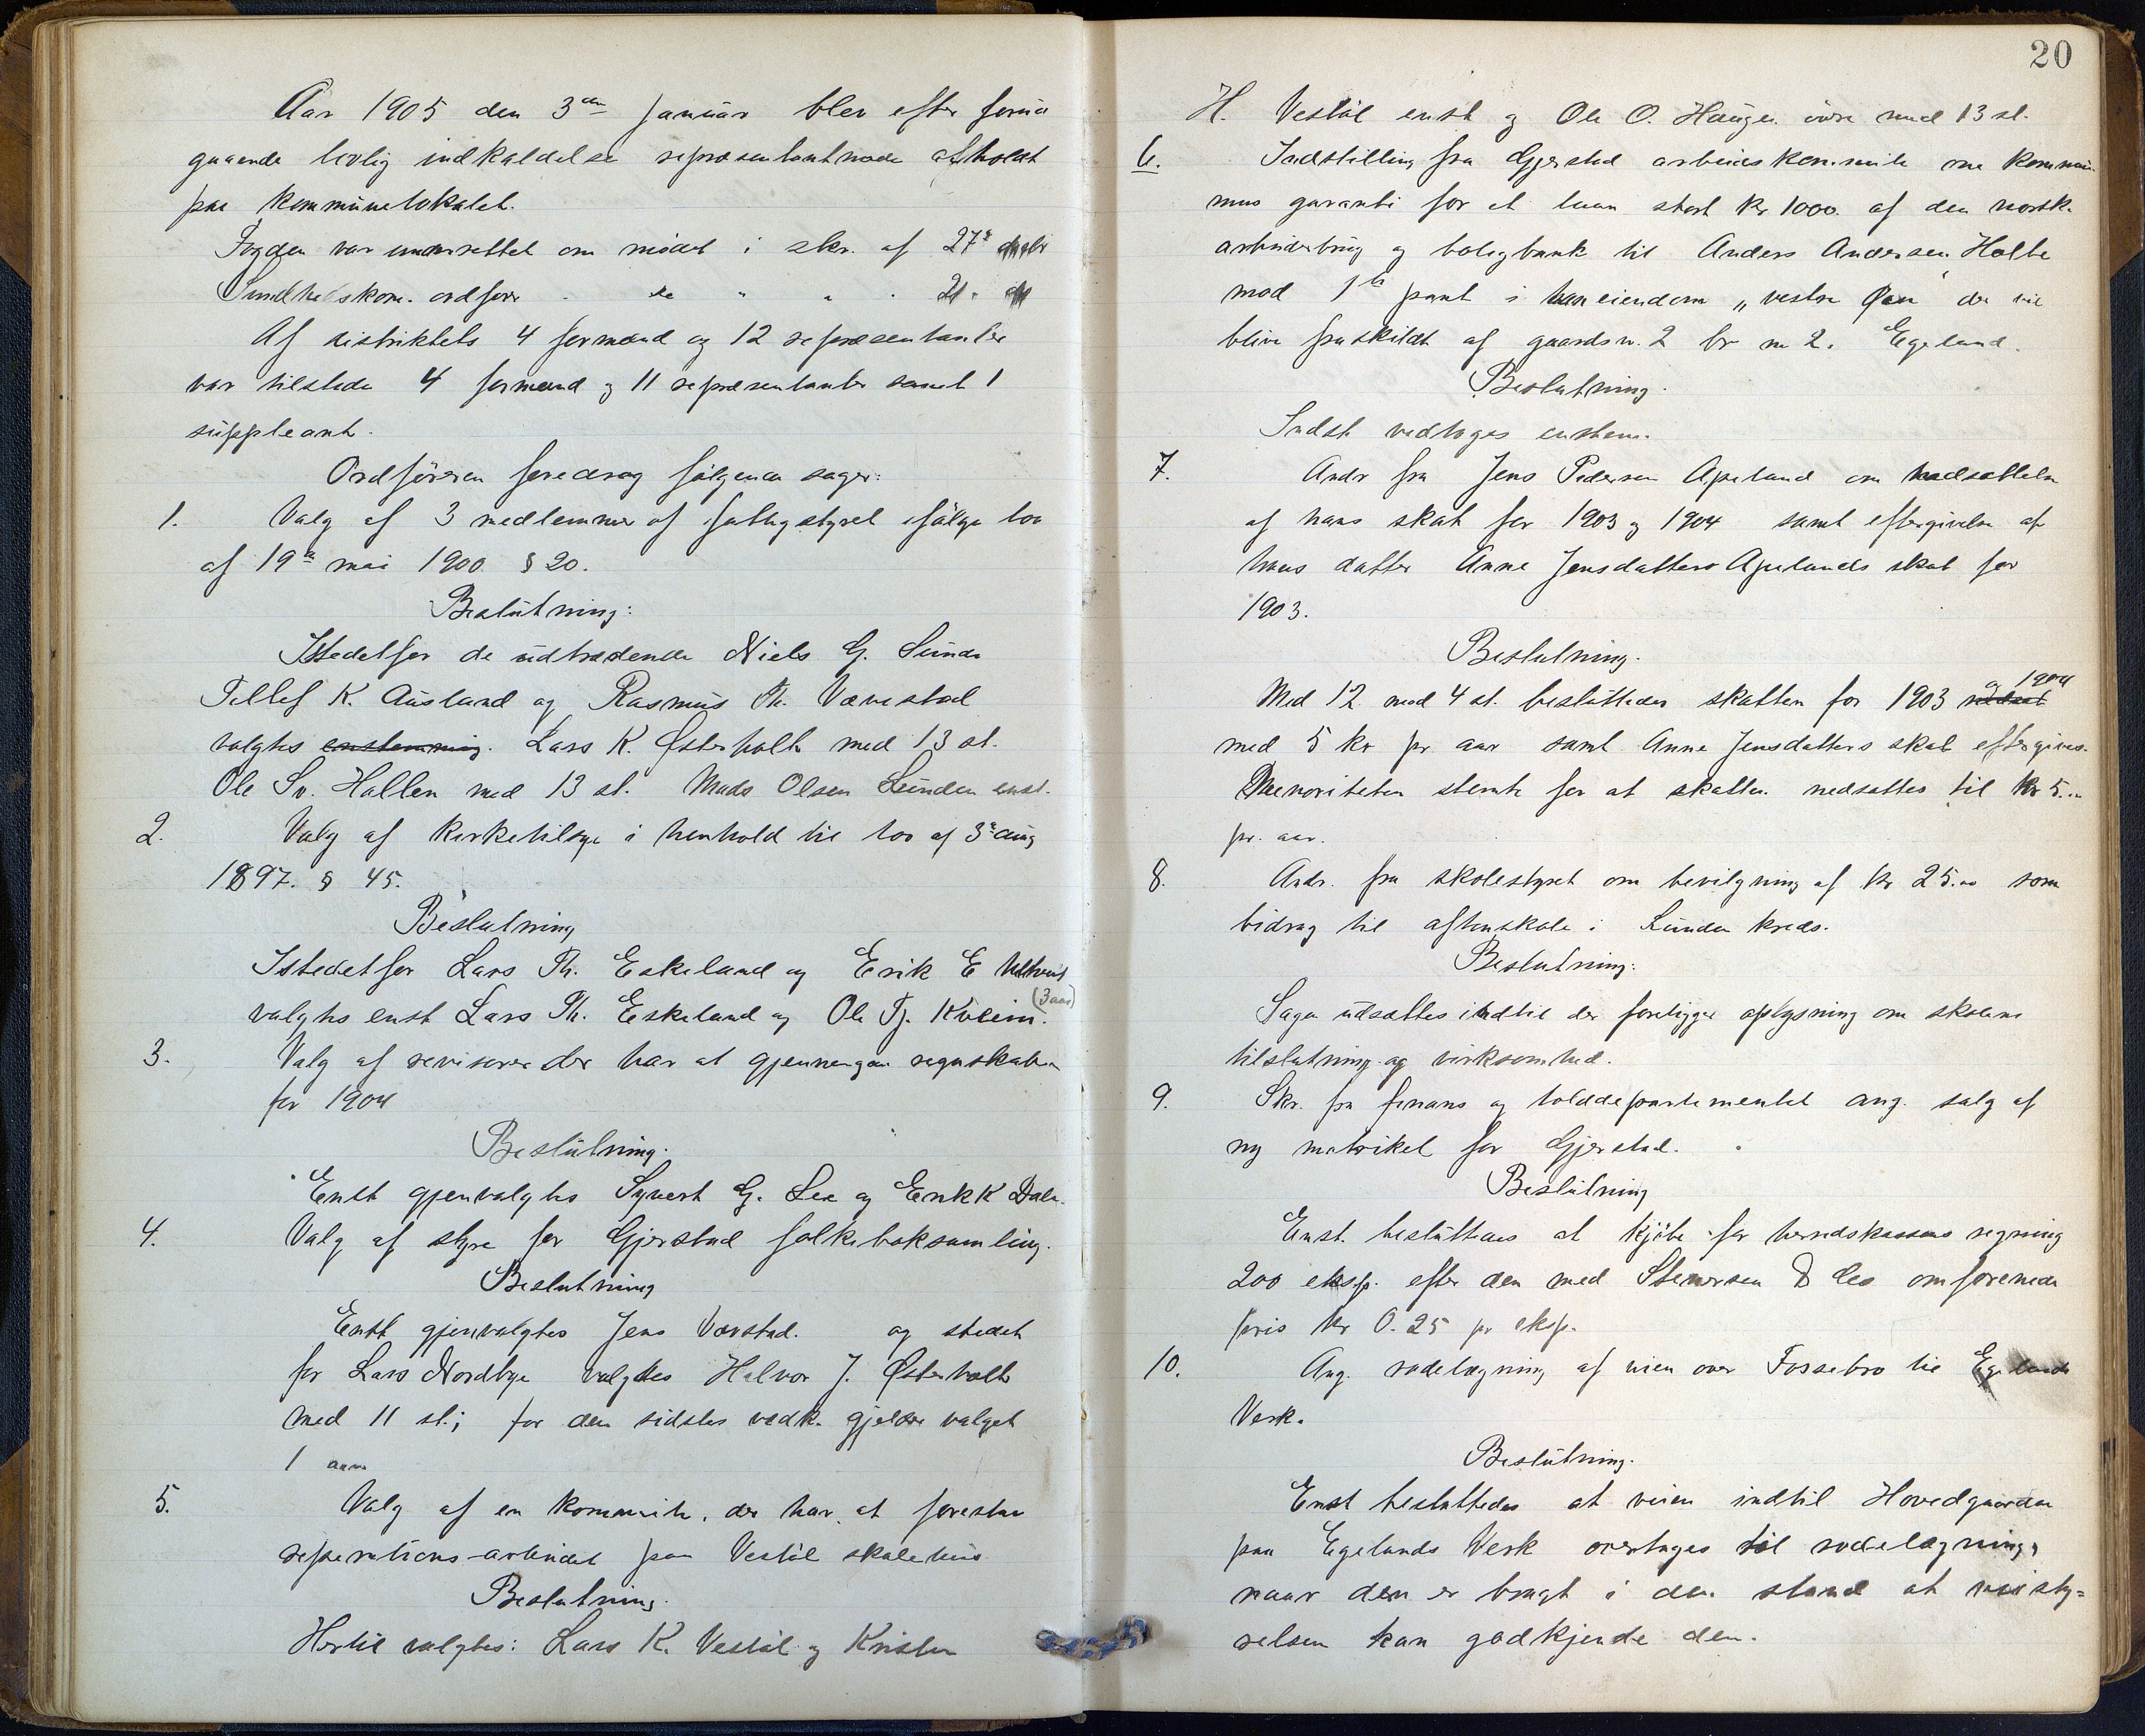 Aar 1905 den 3die januar blev efter forud
gaaende lovlig indkaldelse repræsentantmøde afholdt
paa kommunelokalet.
Fogden var underrettet om mødet i skr. af 27de
Sundhedskom. ordfører " do " " " 21.
Af distriktets 4 formænd og 12 repræsentanter
var tilstede 4 formænd og 11 repræsentanter samt 1
suppleant.
Ordføreren foredrog følgende sager:
1. Valg af 3 medlemmer af fattigstyret ifølge lov
af 19de mai 1900 § 20.
Beslutning:
Istedetfor de udtrædende Niels G. Sunde
Tellef K. Ausland og Rasmus Th. Vævestad
valgtes enstemmig. Lars K. Østerholt med 13 st.
Ole Sv. Hallen med 13 st. Mads Olsen Lunden enst.
2. Valg af kirketilsyn i henhold til lov af 3de aug
1897. § 45.
Beslutning
Istedetfor Lars Th. Eskeland og Erik E
valgtes enst Lars Th. Eskeland og Ole Tj. Kveim. (3 aar)
3. Valg af revisorer der har at gjennemgaa regnskaberne
for 1904
Beslutning.
Enst gjenvalgtes Syvert G. Lee og Erik K Dale.
4. Valg af styre for Gjerstad folkeboksamling.
Beslutning
Enst gjenvalgtes Jens Vævstad. og stedet
for Lars Nordbye valgtes Halvor J. Østerholt
med 11 st.; for den sidstes vedk. gjelder valget
1 aar.
5. Valg af en kommite, der har at forestaa
reperations-arbeidet paa Vestøl skolehus
Beslutning.
Hertil valgtes: Lars K. Vestøl og Kristen
20
H. Vestøl enst og Ole O. Haugen øvre med 13 st.
6. Indstilling fra Gjerstad arbeiderkommite om kommu-
nens garanti for et laan stort kr 1000. af den norske
arbeiderbrug og boligbank til Anders Andersen Holte
mod 1ste pant i han eiendom "vestre Øen" der vil
blive fraskildt af gaardsn. 2 br n 2. Egeland.
Beslutning.
Indst. vedtoges enstem.
7. Andr fra Jens Pedersen Apeland om nedsættelse
af hans skat for 1903 og 1904 samt eftergivelse af
hans datter Anne Jensdatters Apelands skat for
1903.
Beslutning.
Med 12 mod 4 st. besluttedes skatten for 1903 og 1904 nedsat
med 5 kr pr aar samt Anne Jensdatters skat eftergives.
Menoriteten stemte for at skatten nedsattes til kr 5.00
pr. aar.
8. Andr. fra skolestyret om bevilgning af kr 25.00 som
bidrag til aftenskole i Lunden kreds.
Beslutning:
Sagen udsættes indtil der foreligger oplysning om skolens
tilslutning og virksomhed.
9. Skr. fra finans og tolddepartementet ang. salg af
ny matrikel for Gjerstad.
Beslutning
Enst. besluttedes at kjøbe for herredskassens regning
200 eksp. efter den med Stenersen & Co omforenede
pris kr 0.25 pr eksp.
10. Ang. rodelægning af veien over Fossebro til Egelands
Verk.
Beslutning.
Enst besluttedes at veien indtil Hovedgaarden
paa Egelands Verk overtages til rodelægning,
naar den er bragt i den stand at veisty=
relsen kan godkjende den.